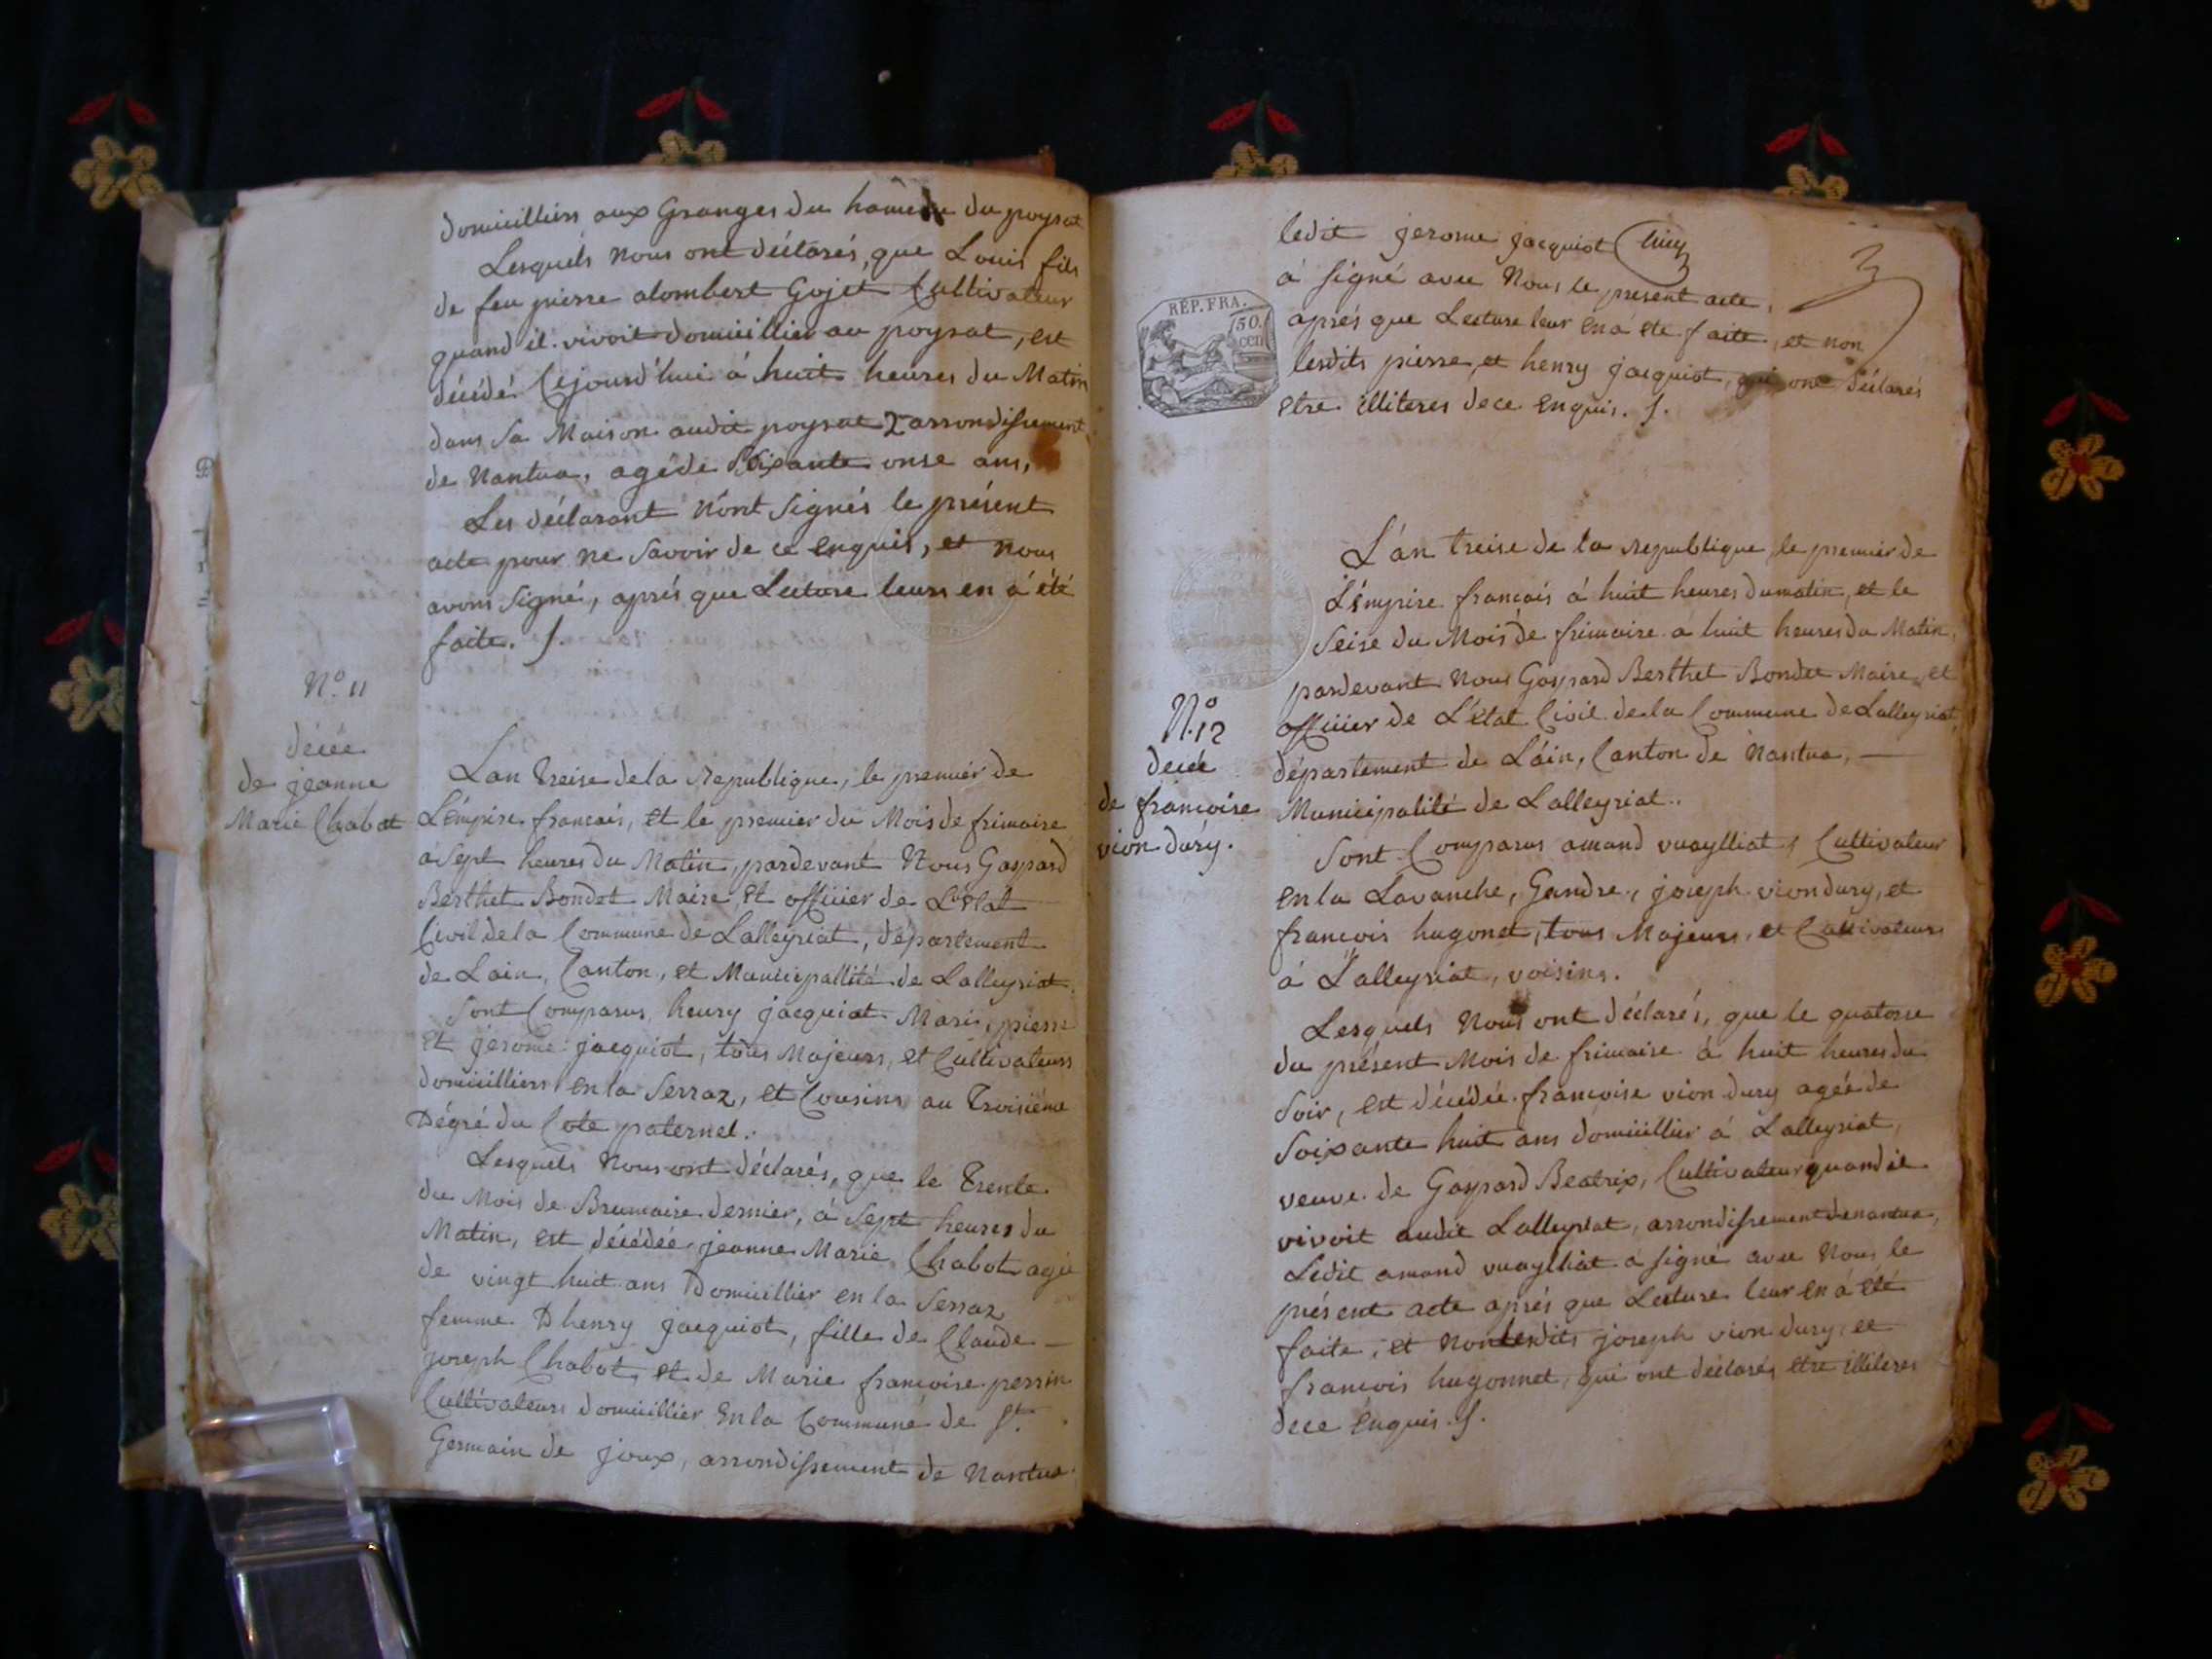 domicilliers aux Granges du hameau du poysat
Lesquels nous ont déclarés, que Louis fils
de feu pierre alombert Gojet Cultivateur
quand il vivoit domicillier au poysat, est
décédé Cejourd'hui á huit heures du Matin
dans sa Maison audit poysat arrondissement
de Nantua, agé de Soixante onse ans,
Les déclarant n'ont signés le présent
acte pour ne savoir de ce enquis, et nous
avons signé, aprés que Lecture leurs en á été
faite. /.
N.o 11
décée
de jeanne
Marie Chabot
Lan treise de la Republique, le premier de
L'émpire francais, et le premier du Mois de frimaire
á sept heures du Matin, pardevant Nous Gaspard
Berthet Bondet Maire et officier de L'etat
Civil de la Commune de Lalleyriat, département
de Lain, Canton, et Municipallité de Lalleyriat.
Sont Comparus henry jacquiot Mari, pierre
et jerome jacquiot, tous Majeurs, et Cultivateurs
domicilliers en la Serraz, et Cousins au Troisiéme
Dégré du Cote paternel.
Lesquels Nous ont déclarés, que le Trente
du Mois de Brumaire dernier, á Sept heures du
Matin, est décédée jeanne Marie Chabot agée
de vingt huit ans Domicillier en la Serraz
femme D henry jacquiot, fille de Claude
joseph Chabot et de Marie francoise perrin
Cultivateurs domicillier en la Commune de St.
Germain de joux, arrondissement de Nantua.
ledit jerome jacquiot
á signé avec Nous le present acte,
aprés que Lecture leur en á ete faite, et non
lesdits pierre et henry jacquiot, qui ont déclarés
etre illiteres de ce enquis. /.
3
REP. FRA.
50.
L'an treise de la Republique, le premier de
L'émpire francais á huit heures du matin, et le
Seise du Mois de frimaire a huit heures du Matin,
pardevant Nous Gaspard Berthet Bondet Maire et
officier de L'état Civil de la Commune de Lalleyriat,
département de L'áin, Canton de Nantua,
Municipalité de Lalleyriat.
N.o 12
decée
de francoise
vion dury.
Sont Comparus amand vuaylliat, Cultivateur
en la Lavanche, Gendre, joseph vion dury, et
francois hugonet, tous Majeurs, et Cultivateurs
á Lalleyriat, voisins.
Lesquels Nous ont déclarés, que le quatorse
du présent Mois de frimaire á huit heures du
Soir, est décédée francoise vion dury agée de
Soixante huit ans domicillier á Lalleyriat,
veuve de Gaspard Beatrix, Cultivateur quand il
vivoit audit Lalleyriat, arrondissement de nantua,
Ledit amand vuaylliat á signé avec Nous le
présent acte aprés que Lecture leur en á été
faite, et non lesdits joseph vion dury, et
francois hugonnet, qui ont déclarés etre illiteres
de ce enquis. /.